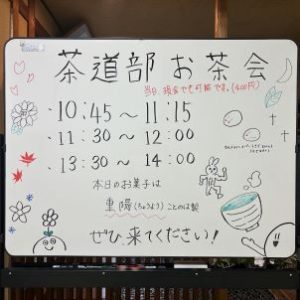 茶道部 お茶会
当日、現金でも可能です。(400円)
・10:45 〜 11:15
・11:30 〜 12:00
・13:30 〜 14:00
本日のお菓子は
重陽(ちょうよう) ことのは製
ぜひ、来てください!